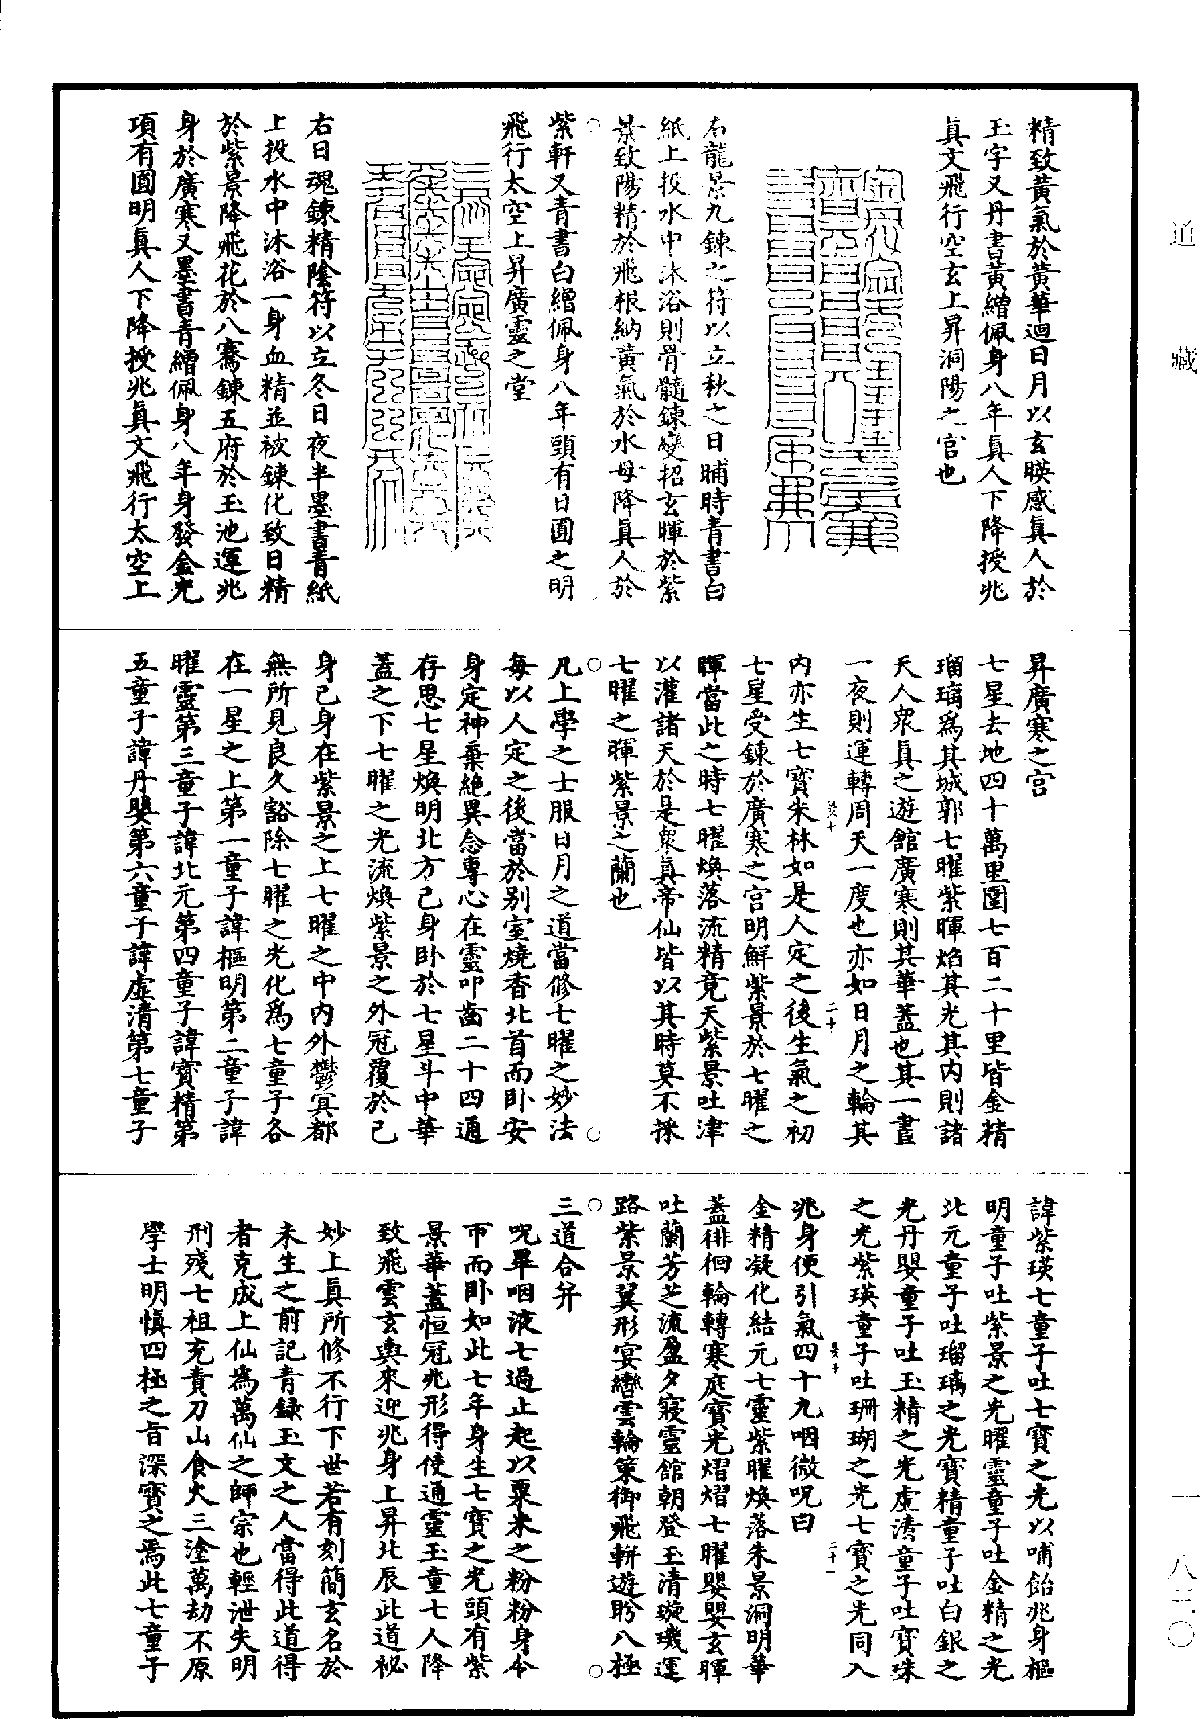 道藏
一八三〇
精致黃氣於黃華迴日月以玄暎感真人於
玉字又丹書黃繒佩身八年真人下降授兆
真文飛行空玄上昇洞陽之宮也
右龍景九鍊之符以立秋之日晡時青書白
紙上投水中沐浴則骨髓鍊變招玄暉於紫
景致陽精於飛根納黃氣於水母降真人於
紫軒又青書白繒佩身八年頭有日圓之明
飛行太空上昇廣靈之堂
右日魂鍊精陰符以立冬日夜半墨書青紙
上投水中沐浴一身血精並被鍊化致日精
於紫景降飛花於八騫鍊五府於玉池運兆
身於廣寒又墨書青繒佩身八年身發金光
項有圓明真人下降授兆真文飛行太空上
昇廣寒之宮
七星去地四十萬里圍七百二十里皆金精
瑠璃為其城郭七曜紫暉焰其光其內則諸
天人眾真之遊館廣寒則其華蓋也其一晝
一夜則運轉周天一度也亦如日月之輪其
內亦生七寶朱林如是人定之後生氣之初
七星受鍊於廣寒之宮明鮮紫景於七曜之
暉當此之時七曜煥落流精竟天紫景吐津
以灌諸天於是眾真帝仙皆以其時莫不採
七曜之暉紫景之蘭也
凡上學之士服日月之道當修七曜之妙法
每以人定之後當於別室燒香北首而卧安
身定神棄絕異念專心在靈叩齒二十四通
存思七星煥明北方己身卧於七星斗中華
蓋之下七曜之光流煥紫景之外冠覆於己
身己身在紫景之上七曜之中內外鬱冥都
無所見良久豁除七曜之光化為七童子各
在一星之上第一童子諱樞明第二童子諱
曜靈第三童子諱北元第四童子諱寶精第
五童子諱丹嬰第六童子諱虛清第七童子
諱紫瑛七童子吐七寶之光以哺飴兆身樞
明童子吐紫景之光曜靈童子吐金精之光
北元童子吐瑠璃之光寶精童子吐白銀之
光丹嬰童子吐玉精之光虛清童子吐寶珠
之光紫瑛童子吐珊瑚之光七寶之光同入
兆身便引氣四十九咽微呪曰
金精凝化結元七靈紫曜煥落朱景洞明華
蓋徘徊輪轉寒庭寶光熠熠七曜嬰嬰玄暉
吐蘭芳芝流盈夕寢靈館朝登玉清璇璣運
路紫景翼形宴轡雲輪策御飛軿遊盻八極
三道合并
呪畢咽液七過止起以粟米之粉粉身令
帀而卧如此七年身生七寶之光頭有紫
景華蓋恒冠兆形得使通靈玉童七人降
致飛雲玄輿來迎兆身上昇北辰此道祕
妙上真所修不行下世若有刻簡玄名於
未生之前記青錄玉文之人當得此道得
者克成上仙為萬仙之師宗也輕泄失明
刑殘七祖充責刀山食火三塗萬劫不原
學士明慎四極之旨深寶之焉此七童子